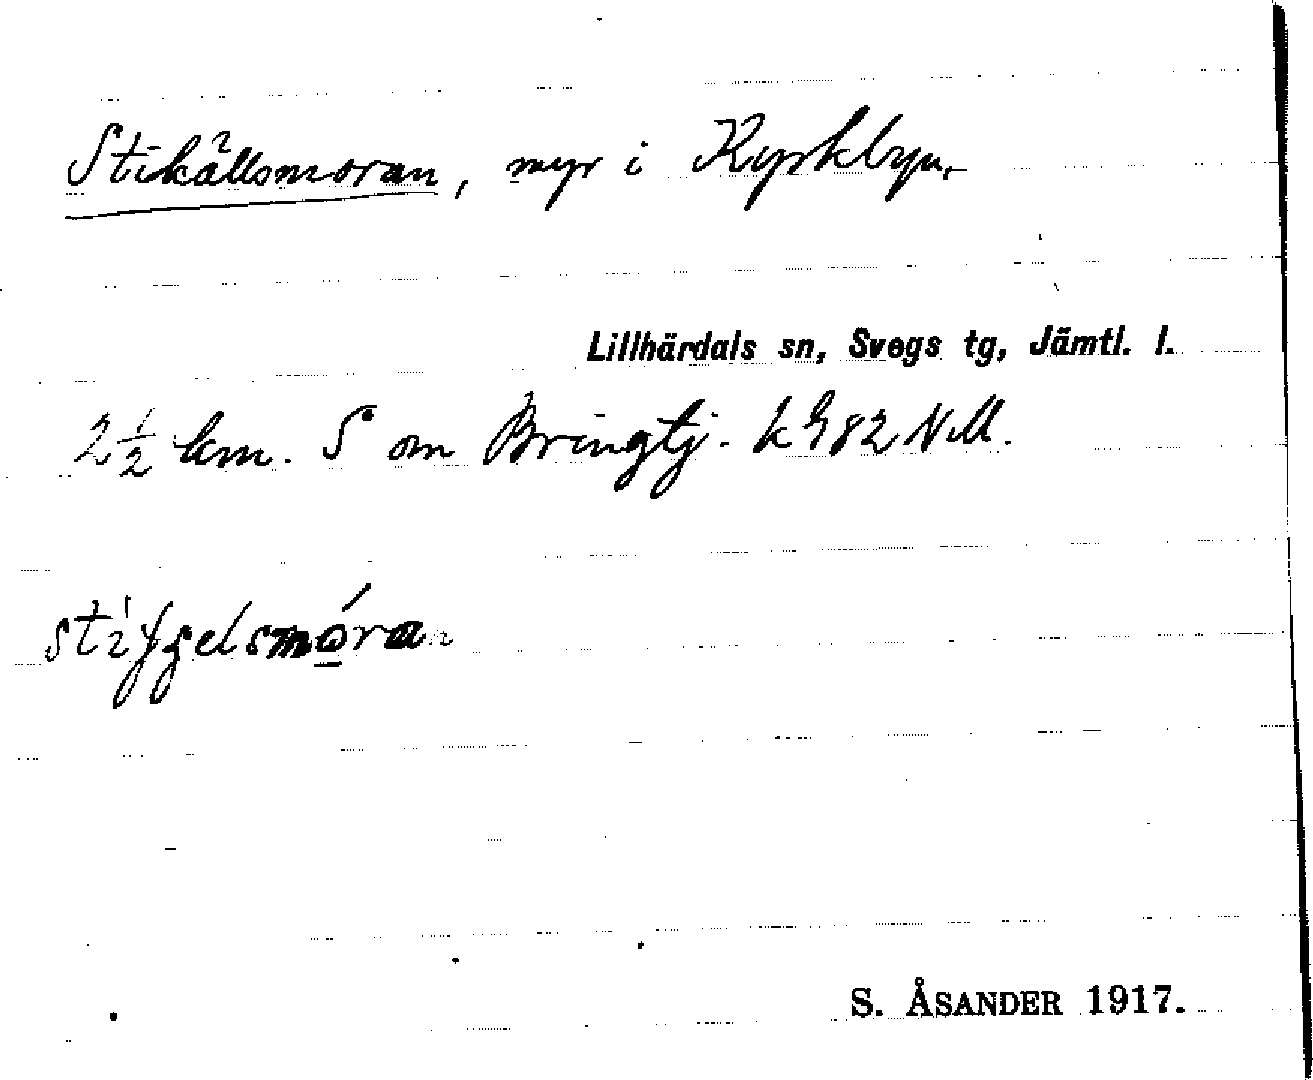 Stikällsmoran, myr i Kyrkbyn,
Lillhärdals sn, Svegs tg, Jämtl. l.
2½ km. S om Bringtj. k 982 N.M.
S. ÅSANDER 1917.